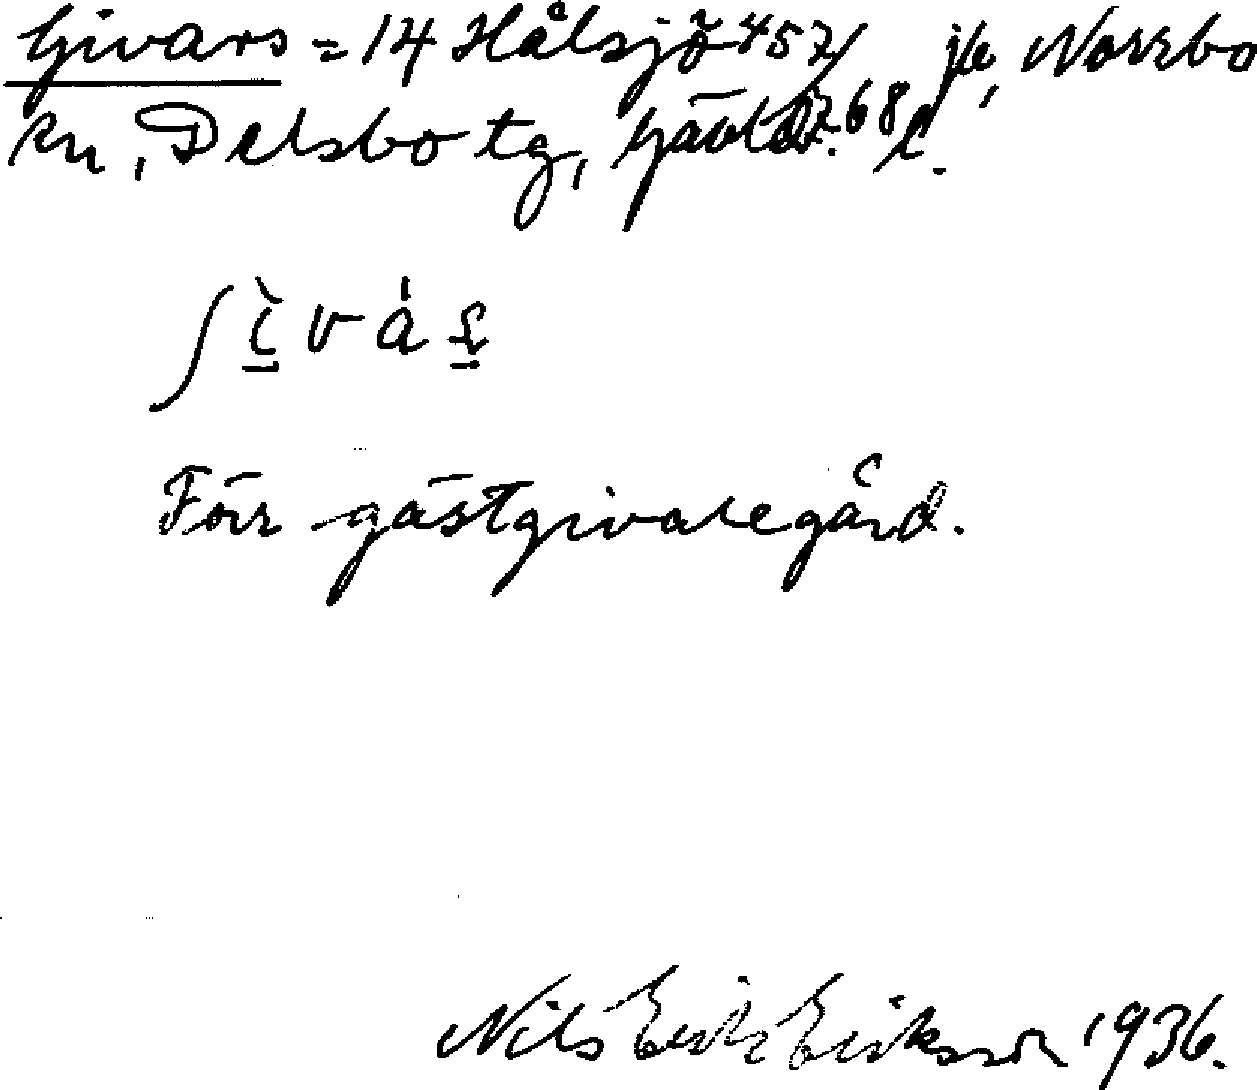 Givars = 14 Hålsjö 457/ jb, Norrbo
sn, Delsbo tg, Gävleb. 68 l.
ʃì̱vás̱
Förr gästgivaregård.
Nils Erik Eriksson 1936.